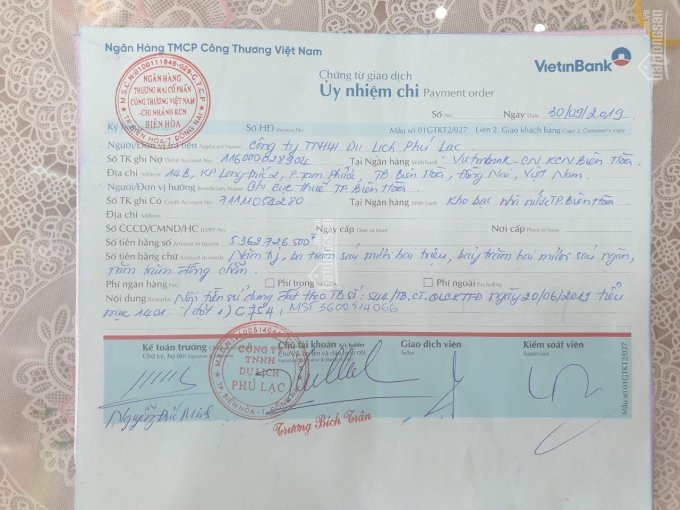 Ngân Hàng TMCP Công Thương Việt Nam
VietinBank
Chứng từ giao dịch
Ủy nhiệm chi Payment order
Số No Ngày Date 30/09/2019
Số HĐ Invoice No Mẫu số 01GTKT2/027 Liên 2. Giao khách hàng Copy 2. Customer's copy
Người/Đơn vị trả tiền Applicant Name Công ty TNHH Du Lịch Phú Lạc
Số TK ghi Nợ Debit Account No. Tại Ngân hàng With bank Vietinbank - CN KCN Biên Hòa
Địa chỉ Address 14B, KP Long Đức 2, P. Tam Phước, TP Biên Hòa, Đồng Nai, Việt Nam.
Người/Đơn vị hưởng Beneficiary Name Chi cục thuế TP. Biên Hòa
Số TK ghi Có Credit Account No. 7111 Tại Ngân hàng With bank Kho bạc nhà nước TP. Biên Hòa
Địa chỉ Address
Số CCCD/CMND/HC ID/PP No Ngày cấp Date Nơi cấp Place of issue
Số tiền bằng số Amount in figures 5.362.726.500đ
Số tiền bằng chữ Amount in words Năm tỷ, ba trăm sáu mươi hai triệu, bảy trăm hai mươi sáu ngàn,
năm trăm đồng chẵn.
Phí ngân hàng Phí trong Phí ngoài
Nội dung Remarks Nộp tiền sử dụng đất theo TB số: 544/TB.CT.QLCKTTĐ ngày 20/06/2019 tiểu
mục 1401. (đợt 1) C754, MST 3600514066
Kế toán trưởng Chủ tài khoản A/c holder Giao dịch viên Kiểm soát viên
Chữ ký, họ tên Teller Supervisor
NGÂN HÀNG
THƯƠNG MẠI CỔ PHẦN
CÔNG THƯƠNG VIỆT NAM
-CHI NHÁNH KCN
BIÊN HÒA
CÔNG TY
TNHH
DU LỊCH
PHÚ LẠC
Nguyễn Đức Minh
Trương Bích Trân
Mẫu số 01GTKT2/027
batdongsan